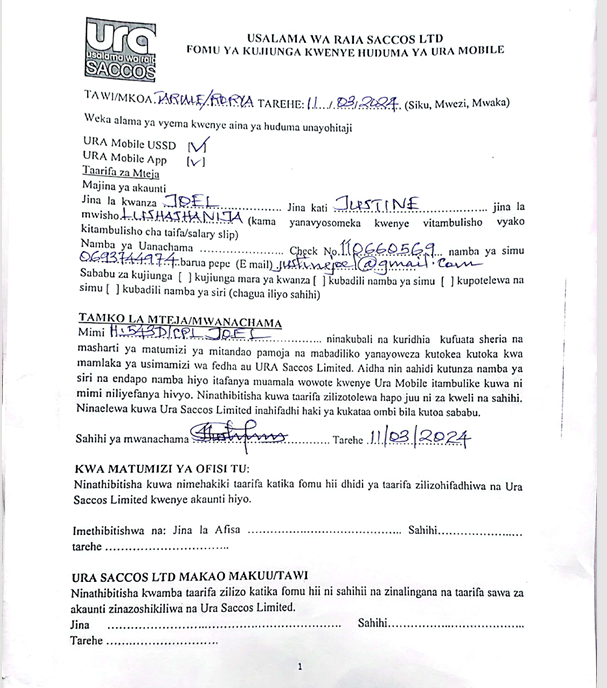 ura
usalama wa raia
SACCOS
USALAMA WA RAIA SACCOS LTD
FOMU YA KUJIUNGA KWENYE HUDUMA YA URA MOBILE
TAWI/MKOA. TARIME/RORYA TAREHE: 11 / 03, 2024 (Siku, Mwezi, Mwaka)
Weka alama ya vyema kwenye aina ya huduma unayohitaji
URA Mobile USSD [✓]
URA Mobile App [✓]
Taarifa za Mteja
Majina ya akaunti
Jina la kwanza JOEL Jina kati JUSTINE jina la
mwisho LUSHASHANIJA (kama yanavyosomeka kwenye vitambulisho vyako
kitambulisho cha taifa/salary slip)
Namba ya Uanachama .................... Check No. 110660569 namba ya simu
0693744974 barua pepe (E mail) justinepel@gmail.com
Sababu za kujiunga [ ] kujiunga mara ya kwanza [ ] kubadili namba ya simu [ ] kupotelewa na
simu [ ] kubadili namba ya siri (chagua iliyo sahihi)
TAMKO LA MTEJA/MWANACHAMA
Mimi H.543D/CPL JOEL ninakubali na kuridhia kufuata sheria na
masharti ya matumizi ya mitandao pamoja na mabadiliko yanayoweza kutokea kutoka kwa
mamlaka ya usimamizi wa fedha au URA Saccos Limited. Aidha nin aahidi kutunza namba ya
siri na endapo namba hiyo itafanya muamala wowote kwenye Ura Mobile itambulike kuwa ni
mimi niliyefanya hivyo. Ninathibitisha kuwa taarifa zilizotolewa hapo juu ni za kweli na sahihi.
Ninaelewa kuwa Ura Saccos Limited inahifadhi haki ya kukataa ombi bila kutoa sababu.
Sahihi ya mwanachama .................... Tarehe 11/03/2024
KWA MATUMIZI YA OFISI TU:
Ninathibitisha kuwa nimehakiki taarifa katika fomu hii dhidi ya taarifa zilizohifadhiwa na Ura
Saccos Limited kwenye akaunti hiyo.
Imethibitishwa na: Jina la Afisa ........................................ Sahihi........................
tarehe ................................
URA SACCOS LTD MAKAO MAKUU/TAWI
Ninathibitisha kwamba taarifa zilizo katika fomu hii ni sahihii na zinalingana na taarifa sawa za
akaunti zinazoshikiliwa na Ura Saccos Limited.
Jina ................................................ Sahihi................................
Tarehe ............................
1